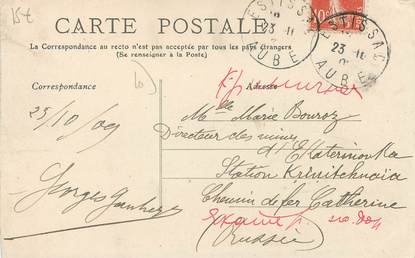 15t
CARTE POSTALE
La Correspondance au recto n'est pas acceptée par tous les pays étrangers
(Se renseigner à la Poste)
ESTISSAC
23
AUBE
ESTISSAC
23
AUBE
Correspondance
Adresse
25/10/09
Mlle Marie Bouroz
Directeur des mines
d'Ekaterinovka
Station Krinitchnaia
Chemin de fer Catherine
(Russie)
Georges